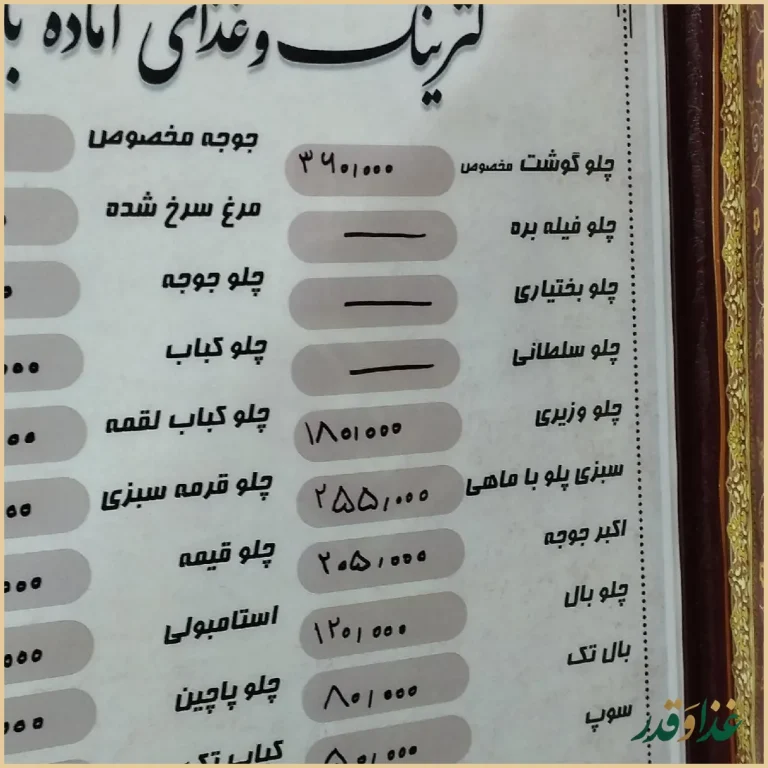 کترینگ وغذای آماده با
چلو گوشت مخصوص ۳۶۰,۰۰۰
چلو فیله بره —
چلو بختیاری —
چلو سلطانی —
چلو وزیری ۱۸۰,۰۰۰
سبزی پلو با ماهی ۲۵۵,۰۰۰
اکبر جوجه ۲۰۵,۰۰۰
چلو بال ۱۲۰,۰۰۰
بال تک ۸۰,۰۰۰
سوپ ۵۰,۰۰۰
جوجه مخصوص
مرغ سرخ شده
چلو جوجه
چلو کباب
چلو کباب لقمه
چلو قرمه سبزی
چلو قیمه
استامبولی
چلو پاچین
کباب تک
غذا و قدر